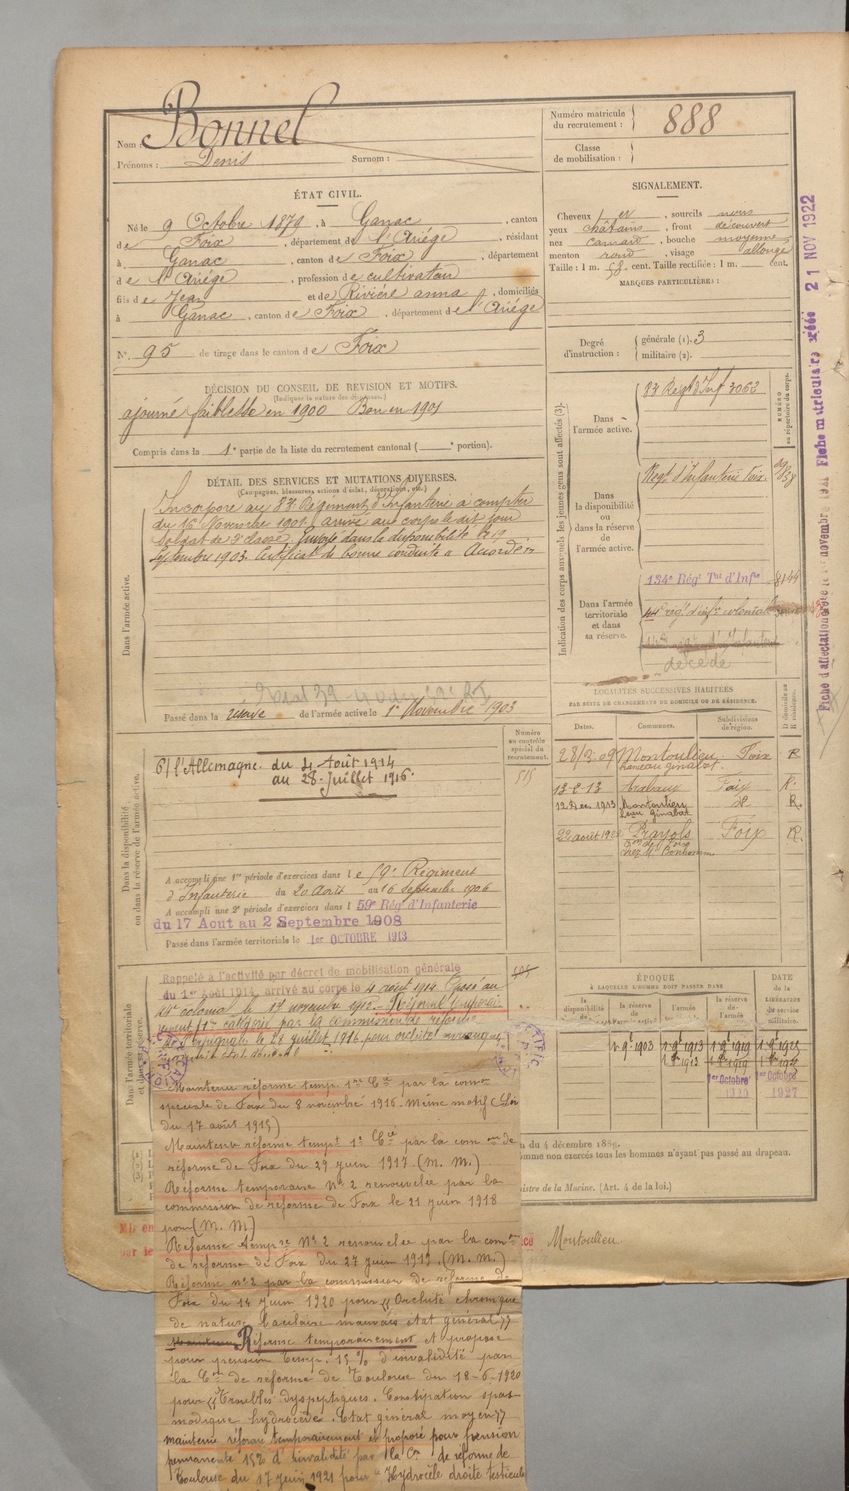 Nom : Bonnel
Prénoms : Denis Surnom :
Numéro matricule du recrutement : 888
Classe de mobilisation :
ÉTAT CIVIL.
Né le 9 Octobre 1879, à Ganac, canton
de Foix, département de l'Ariége, résidant
à Ganac, canton de Foix, département
de l'Ariége, profession de cultivateur
fils de Jean et de Rivière anna, domiciliés
à Ganac, canton de Foix, département de l'Ariége
N° 95 de tirage dans le canton de Foix
SIGNALEMENT.
Cheveux, sourcils noirs
yeux chatains, front découvert
nez camard, bouche moyenne
menton rond, visage allongé
Taille : 1 m. 58 cent. Taille rectifiée : 1 m. cent.
MARQUES PARTICULIÈRES :
Degré d'instruction : générale (1). 3
militaire (2).
DÉCISION DU CONSEIL DE REVISION ET MOTIFS.
(Indiquer la nature des dispenses.)
ajourné faiblesse en 1900 Bon en 1901
Compris dans la 1e partie de la liste du recrutement cantonal ( e portion).
DÉTAIL DES SERVICES ET MUTATIONS DIVERSES.
(Campagnes, blessures, actions d'éclat, décorations, etc.)
Dans l'armée active.
Incorporé au 83e Régiment d'Infanterie à compter
du 16 Novembre 1901, arrivé au corps le dit jour
soldat de 2e classe. Envoyé dans la disponibilité le 19
Septembre 1903. Certificat de bonne conduite "Accordé"
Passé dans la réserve de l'armée active le 1er Novembre 1903
Indication des corps auxquels les jeunes gens sont affectés (3).
NUMÉRO au répertoire du corps.
Dans l'armée active.
83 Régt d'Inf 3062
Dans la disponibilité ou dans la réserve de l'armée active.
Régt. d'Infanterie Foix.
Dans l'armée territoriale et dans sa réserve.
134e Rég' T'al d'Inf'ie 8144
44e régt d'infie coloniale
décédé
Fiche matriculaire créée 21 NOV 1922
LOCALITÉS SUCCESSIVES HABITÉES
PAR SUITE DE CHANGEMENTS DE DOMICILE OU DE RÉSIDENCE.
Dates. Communes. Subdivisions de région. D domicile ou R résidence.
28/2.09 Montoulieu Foix R
hameau Ginabat.
Foix R.
12 Déc. 1913 Montoulieu R.
Ginabat
22 août Prayols Foix R.
Dans la disponibilité ou dans la réserve de l'armée active.
Numéro au contrôle spécial du recrutement.
515
C/ l'Allemagne. du 4 Août 1914
au 28 Juillet 1916.
A accompli une 1re période d'exercices dans le 59e Régiment
d'Infanterie du 20 Août au 16 Septembre 1906
A accompli une 2e période d'exercices dans l 59e Rég' d'Infanterie
du 17 Aout au 2 Septembre 1908
Passé dans l'armée territoriale le 1er OCTOBRE 1913
Dans l'armée territoriale et dans sa réserve.
Rappelé à l'activité par décret de mobilisation générale
du 1er Août 1914, arrivé au corps le 4 août 1914. Passé au
44e colonial le 17 novembre 1915. Réformé temporai-
rement 1re catégorie par la commission de réforme
de Perpignan le 28 juillet 1916 pour orchite
ÉPOQUE
À LAQUELLE L'HOMME DOIT PASSER DANS
la disponibilité de la réserve de l'armée la réserve de l'armée
DATE de la LIBÉRATION du service militaire.
1er 9bre 1903 1er 9bre 1913 1er 9bre 1919
1er Octobre 1er Octobre
1920 1927
Maintenu réforme temp. 1re Cie par la comon
spéciale de Foix du 8 novembre 1916. Même motif (Loi
du 17 août 1915)
Maintenu réforme tempre 1e Cie par la comon de
réforme de Foix du 29 juin 1917 (m. m.)
Réforme temporaire N° 2 renouvelée par la
commission de réforme de Foix le 21 juin 1918
pour (M. M.)
Réforme tempre N° 2 renouvelée par la comon
de réforme de Foix du 27 juin 1919. (M. M.)
Réformé n° 2 par la commission de réforme de
Foix du 14 juin 1920 pour "Orchite chronique
de nature bacillaire mauvais état général"
Réformé temporairement et proposé
pour pension temp. 15 % d'invalidité par
la Con de réforme de Toulouse du 18-6-1920
pour "Troubles dyspeptiques. Constipation spas-
modique hydrocèle. Etat général moyen"
maintenu réformé temporairement et proposé pour pension
permanente 15% d'invalidité par la Con de réforme de
Toulouse du 17 juin 1921 pour "Hydrocèle droite testicule
du 4 décembre 1889.
omme non exercés tous les hommes n'ayant pas passé au drapeau.
nistre de la Marine. (Art. 4 de la loi.)
Montoulieu